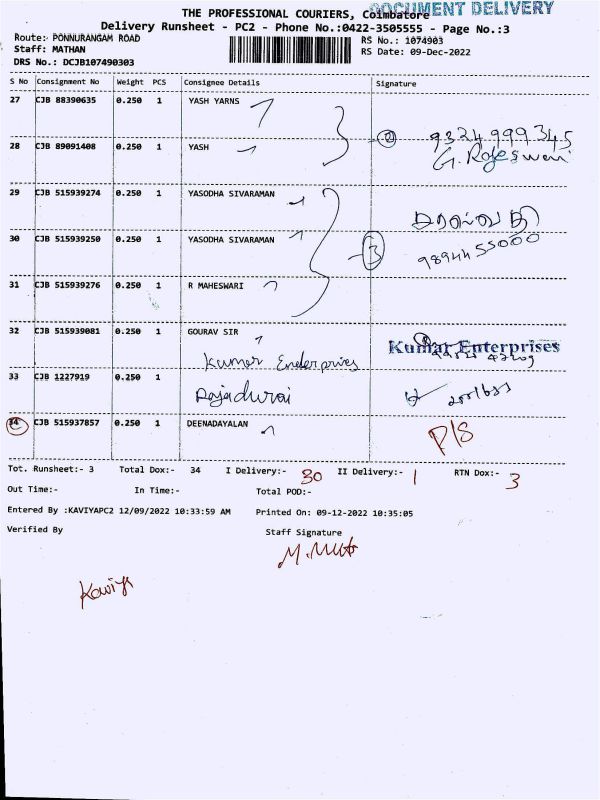 DOCUMENT DELIVERY
THE PROFESSIONAL COURIERS, Coimbatore
Delivery Runsheet - PC2 - Phone No.:0422-3505555 - Page No.:3
Route:- PONNURANGAM ROAD
RS No.: 1074903
Staff: MATHAN
RS Date: 09-Dec-2022
DRS No.: DCJB107490303
S No Consignment No Weight PCS Consignee Details Signature
27 CJB 88390635 0.250 1 YASH YARNS
2 9324999345
28 CJB 89091408 0.250 1 YASH G. Rajeswari
29 CJB 515939274 0.250 1 YASODHA SIVARAMAN
30 CJB 515939250 0.250 1 YASODHA SIVARAMAN
3 9894455000
31 CJB 515939276 0.250 1 R MAHESWARI
32 CJB 515939081 0.250 1 GOURAV SIR
Kumar Enterprises
Kumar Enderprises
33 CJB 1227919 0.250 1 Rajadurai
34 CJB 515937857 0.250 1 DEENADAYALAN P/S
Tot. Runsheet:- 3 Total Dox:- 34 I Delivery:- 30 II Delivery:- 1 RTN Dox:- 3
Out Time:- In Time:- Total POD:-
Entered By :KAVIYAPC2 12/09/2022 10:33:59 AM Printed On: 09-12-2022 10:35:05
Verified By Staff Signature
Kaviya